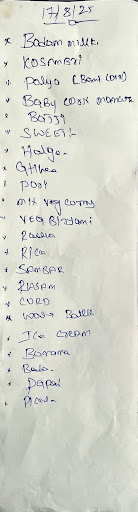 17/8/25
* Badam milk
* KOSMBRI
* Palya (Bani
* BABY CORN MANCHR
* BAJJI
* SWEET-
* Holge
* GHEE
* POORI
* MIX VEG CURRY
* VEG BIRIANI
* RAITHA
* RICE
* SAMBAR
* RASAM
* CURD
* Water Bottle
* ICE CREAM
* Banana
* Beeda
* PAPAD
* Pickle